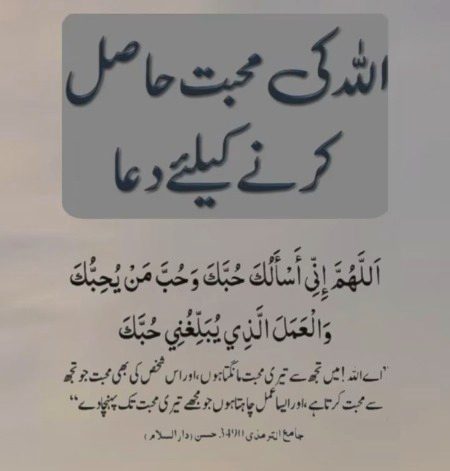 اللہ کی محبت حاصل
کرنے کیلئے دعا
اَللَّهُمَّ إِنِّي أَسْأَلُكَ حُبَّكَ وَحُبَّ مَنْ يُحِبُّكَ
وَالْعَمَلَ الَّذِي يُبَلِّغُنِي حُبَّكَ
"اے اللہ! میں تجھ سے تیری محبت مانگتا ہوں، اور اس شخص کی بھی محبت جو تجھ
سے محبت کرتا ہے، اور ایسا عمل چاہتا ہوں جو مجھے تیری محبت تک پہنچا دے“
جامع الترمذی 3490 حسن (دار السلام)